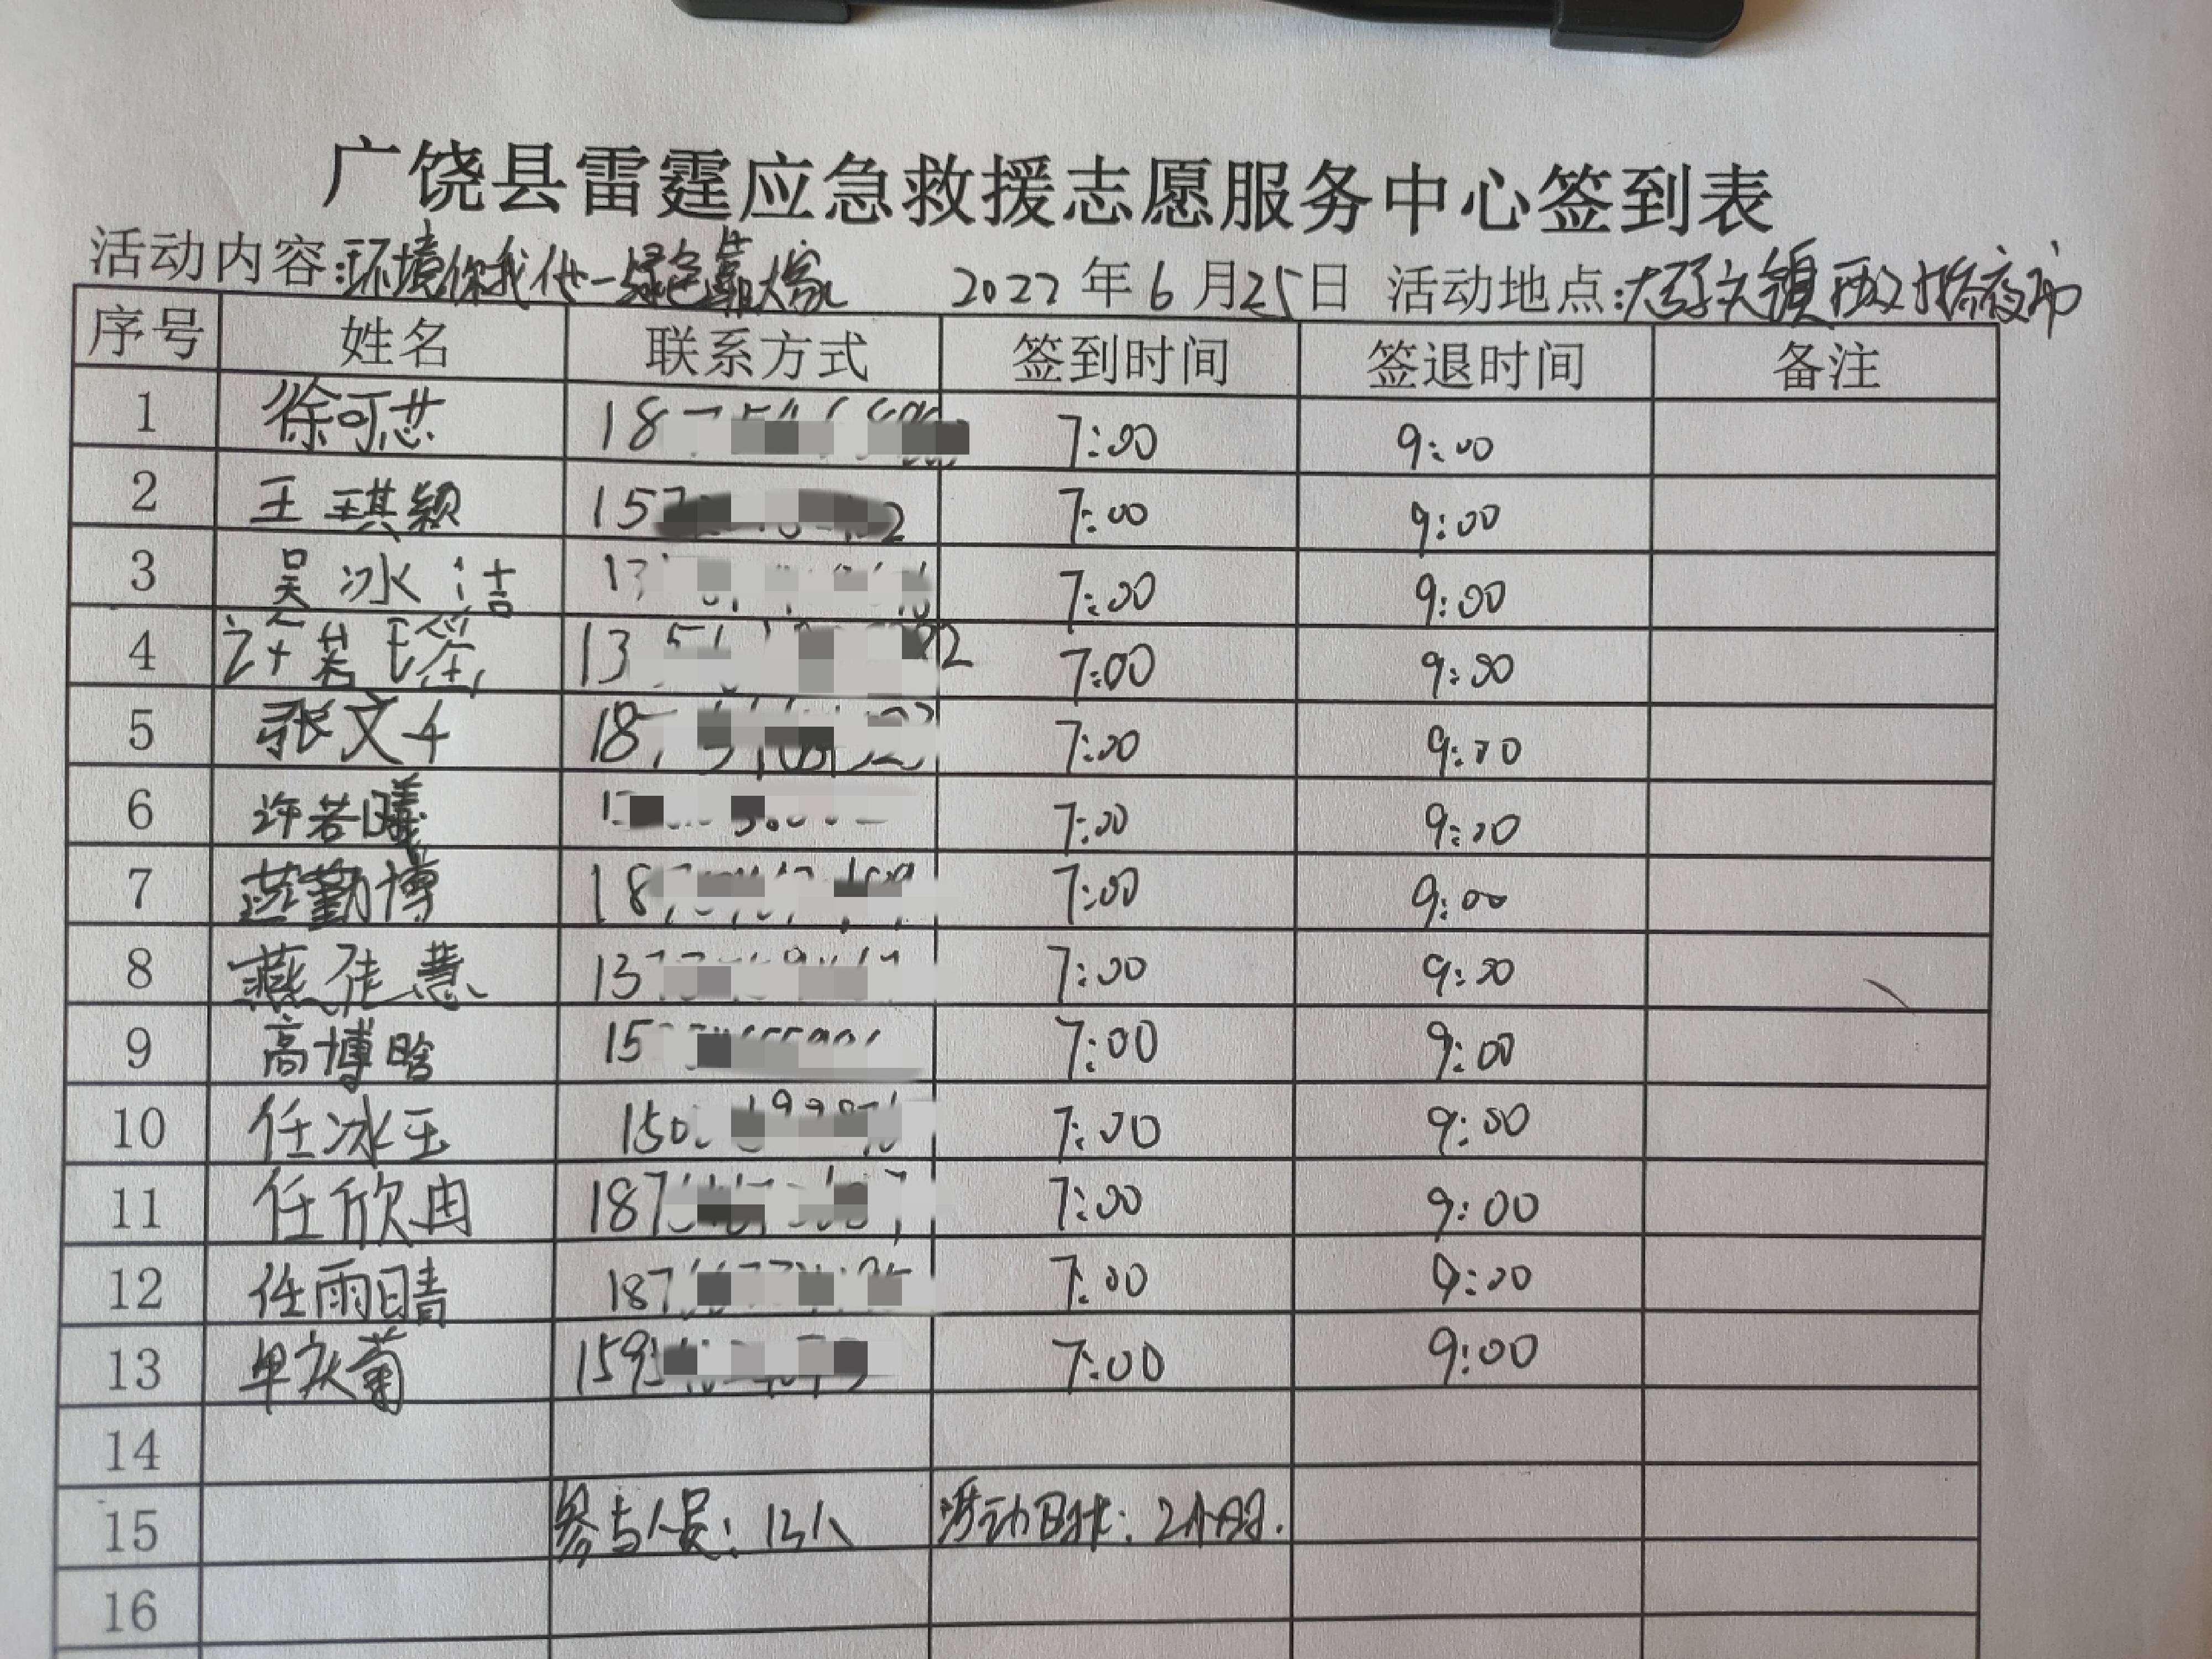 广饶县雷霆应急救援志愿服务中心签到表
活动内容:环境你我他一绿色靠大家 2022年6月25日 活动地点:大王镇西
序号 姓名 联系方式 签到时间 签退时间 备注
1 徐可 18 7:00 9:00
2 王琪颖 15 7:00 9:00
3 吴冰洁 13 7:00 9:00
4 许若 13 7:00 9:00
5 张文千 187 7:00 9:00
6 许若曦 7:00 9:00
7 燕勤博 18 7:00 9:00
8 燕佳慧 13 7:00 9:00
9 高博晗 15 7:00 9:00
10 任冰玉 150 7:00 9:00
11 任欣冉 187 7:00 9:00
12 任雨晴 187 7:00 9:00
13 单庆菊 159 7:00 9:00
14
15 参与人员:13人 活动时长:2小时.
16